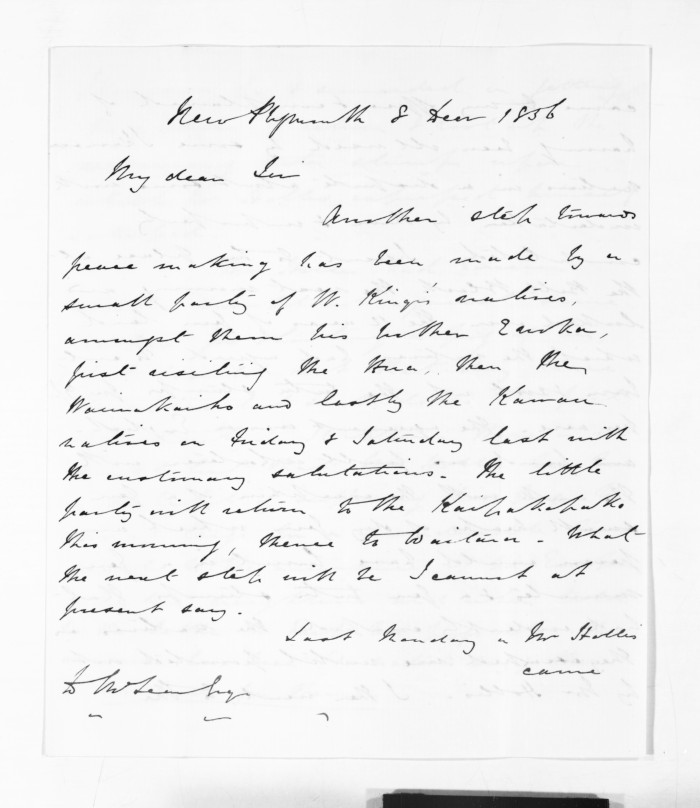 New Plymouth 8 Decr 1856
My dear Sir
Another step towards
peace making has been made by a
small party of W. King's natives,
amongst them his brother Enoka,
first visiting the Hua, then the
Waiwakaiho and lastly the Kawau
natives on Friday & Saturday last with
the customary salutations. The little
party will return to the Kaipakopako
this morning, thence to Waitara. What
the next step will be I cannot at
present say.
Last Monday a Mr Hollis
came
D McLean Esqre